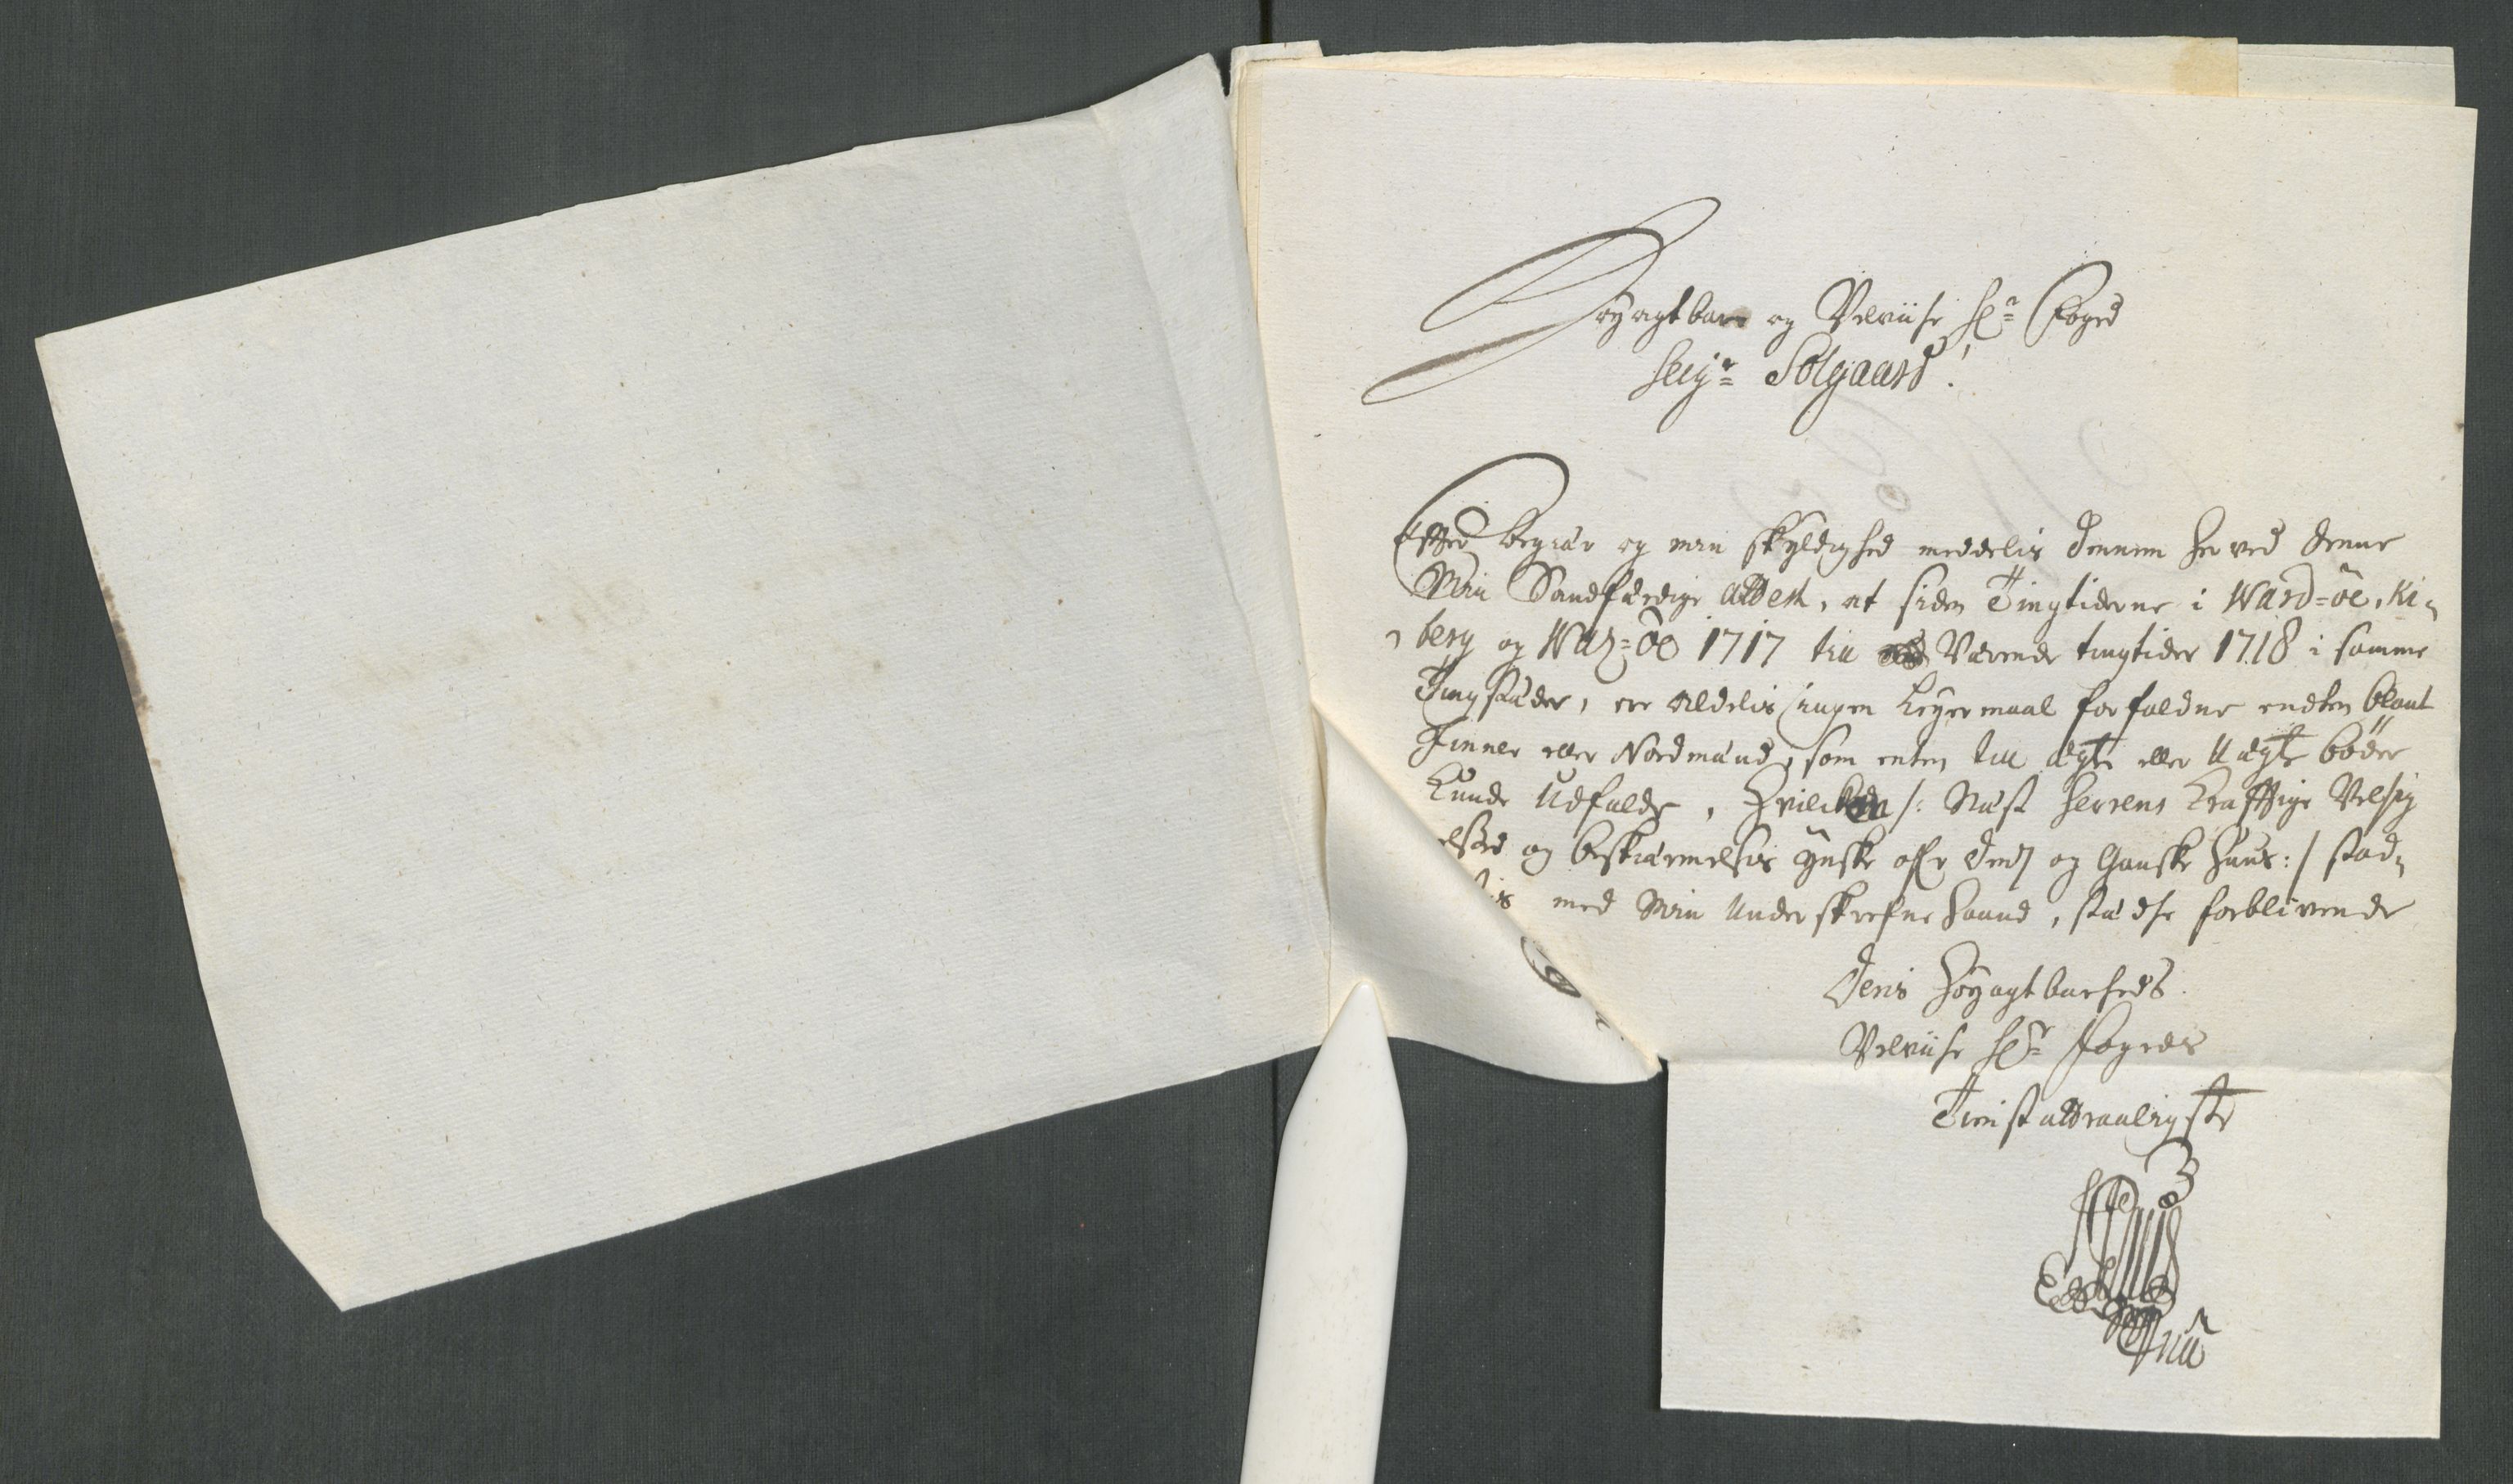 Høyagtbare og Velviise Hr Foged
Seigr Sølgaard!
Efter begiær og min skyldighed meddelis Dennem her ved denne
Min Sandfærdige attest, at siden Tingtiderne i Ward=øe, Ki-
berg og Wadz=Øe 1717 till Værende tingtider 1718 i samme
Tingstæder, ere aldelis ingen Leyermaal forfaldne endten blant
Finner eller Nordmænd, som enten till ægte eller Uægte bøder
Kunde Udfalde, Hvilcken /: Næst Herrens Krafftige Velsig
elsis og beskiærmelsis ynske ofver Dem og Ganske Huus:/ stad-
is med Min Underskrefne Haand, stædse forblivende
Deris Høyagtbarheds
Velviise Hr Fogeds
Tienstædtvaaligste